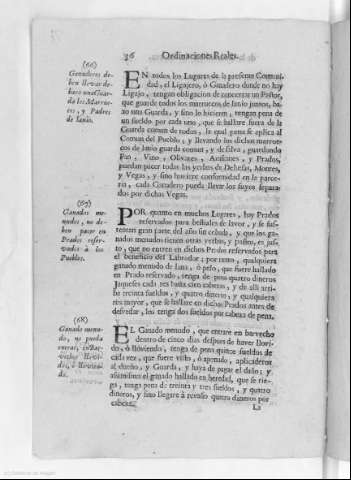 36 Ordinaciones Reales.
(66)
Ganaderos deben llevar de
baxo una Guarda los Marruecos, y Padres
de lanio.
EN todos los Lugares de la presente Comunidad, el Ligajero, ò Ganadero donde no hay
Ligajo, tengan obligacion de concertar un Pastor,
que guarde todos los marruecos de lanio juntos, baxo una Guarda, y sino lo hicieren, tengan pena de
un sueldo por cada uno, que se hallare fuera de la
Guarda comun de todos, la qual pena se aplica al
Comun del Pueblo, y llevando los dichos marruecos de lanio guarda comun, y desilva, guardando
Pan, Vino, Olivares, Azafranes, y Prados,
puedan pacer todas las yerbas de Dehesas, Montes,
y Vegas, y sino huviere conformidad en la parte
cia, cada Ganadero pueda llevar los suyos separados por dichas Vegas.
(67)
Ganados menudos, no deben pacer en
Prados reservados à los
Pueblos.
POR quanto en muchos Lugares, hay Prados
reservados para bestiales de lavor, y se sustentan gran parte del año sin cebada, y que los ganados menudos tienen otras yerbas, y pastos, es justo, que no entren en dichos Prados reservados para
el beneficio del Labrador; por tanto, qualquiera
ganado menudo de lana, ò pelo, que fuere hallado
en Prado reservado, tenga de pena quatro dineros
Jaqueses cada res hasta cien cabezas, y de alli arriba treinta sueldos, y quatro dineros, y qualquiera
res mayor, que se hallare en dichos Prados antes de
desvedar, los tenga dos sueldos por cabeza de pena.
(68)
Ganado menudo, no pueda
entrar, en Barvechos llovidos, ò lloviendo.
EL Ganado menudo, que entrare en barvecho
dentro de cinco dias despues de haver llovido, ò lloviendo, tenga de pena quince sueldos de
cada vez, que fuere visto, ò apenado, aplicaderos
al dueño, y Guarda, y haya de pagar el daño; y
assimismo el ganado hallado en heredad, que se riega, tenga pena de treinta y tres sueldos, y quatro
dineros, y sino llegare à rebaño quatro dineros por
cabeza.
La